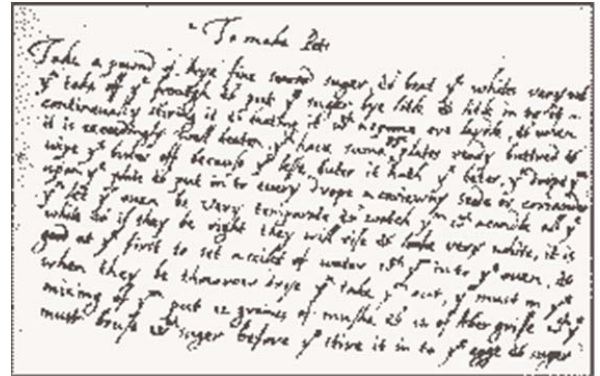 To make Pets
Take a pound of fine suger & beat ye whites very
ye take off ye frough & put ye suger bye litle & litle in to it
continually stiring it & beating it wth a spoone ore ladle, & when
it is exceedingly well beaten, ye have some plates ready buttred &
wipe ye buter off because ye less buter it hath ye beter, ye drope ym
upon ye plate & put in to every drope a carieway sede or coriander
ym let ye oven be very temporate & watch ym wth a candle all ye
while & if they be right they will rise & looke very white, it is
good at ye first to set a of water wth ym in to ye oven, &
when they be thorrow drye ym take ym out, ye must in ye
mixing of ym put 12 graines of muske & 12 of Ambergrise wch ye
must bruse wth suger before ye stire it in to ye eggs & suger